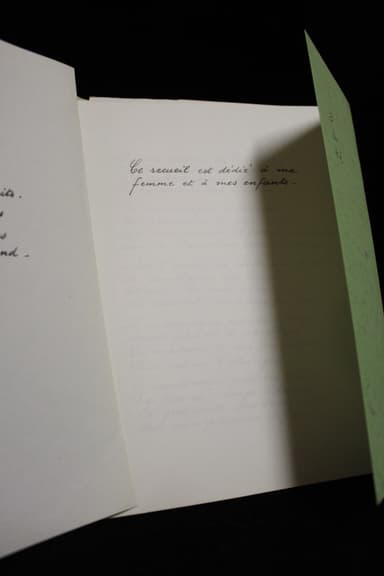 its.
s
s
nd.
Ce recueil est dédié à ma
femme et à mes enfants.